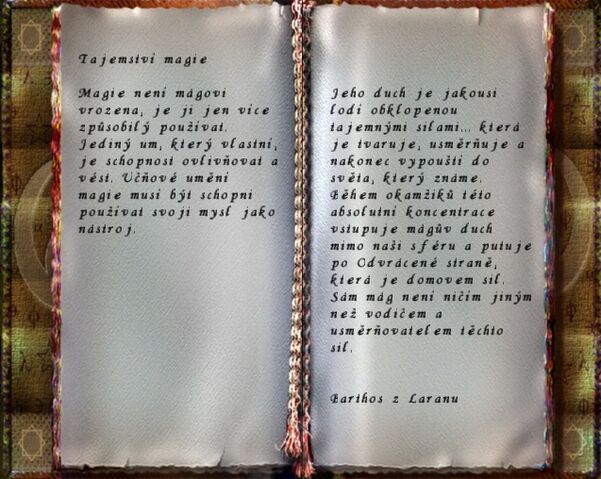 Tajemství magie
Magie není mágovi
vrozena, je jí jen více
způsobilý používat.
Jediný um, který vlastní,
je schopnost ovlivňovat a
vést. Učňové umění
magie musí být schopni
používat svoji mysl jako
nástroj.
Jeho duch je jakousi
lodí obklopenou
tajemnými silami... která
je tvaruje, usměrňuje a
nakonec vypouští do
světa, který známe.
Během okamžiků této
absolutní koncentrace
vstupuje mágův duch
mimo naši sféru a putuje
po Odvrácené straně,
která je domovem sil.
Sám mág není ničím jiným
než vodičem a
usměrňovatelem těchto
sil.
Barthos z Laranu